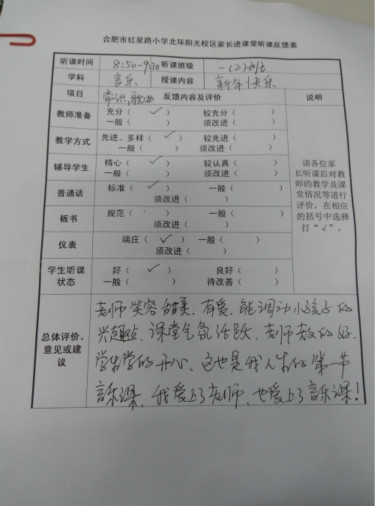 合肥市红星路小学北环阳光校区家长进课堂听课反馈表
听课时间 8:50-9:30 听课班级 一(2)班
学科 音乐 授课内容 新年快乐
项目 反馈内容及评价 说明
教师准备 充分（✓） 较充分（ ）
一般（ ） 须改进（ ）
教学方式 先进、多样（✓） 较先进（ ）
一般（ ） 须改进（ ）
辅导学生 精心（✓） 较认真（ ）
一般（ ） 须改进（ ）
普通话 标准（✓） 一般（ ）
须改进（ ）
板书 规范（ ） 一般（ ）
须改进（ ）
仪表 端庄（✓） 一般（ ）
须改进（ ）
学生听课状态 好（✓） 良好（ ）
一般（ ） 待改善（ ）
请各位家
长听课后对教
师的教学及课
堂情况等进行
评价。在相应
的括号中选择
打“✓”。
总体评价、
意见或建
议
老师笑容甜美、有爱、能调动小孩子的
兴趣点、课堂气氛活跃、老师教的好、
学生学的开心、这也是我人生的第一节
音乐课、我爱上了老师、也爱上了音乐课！